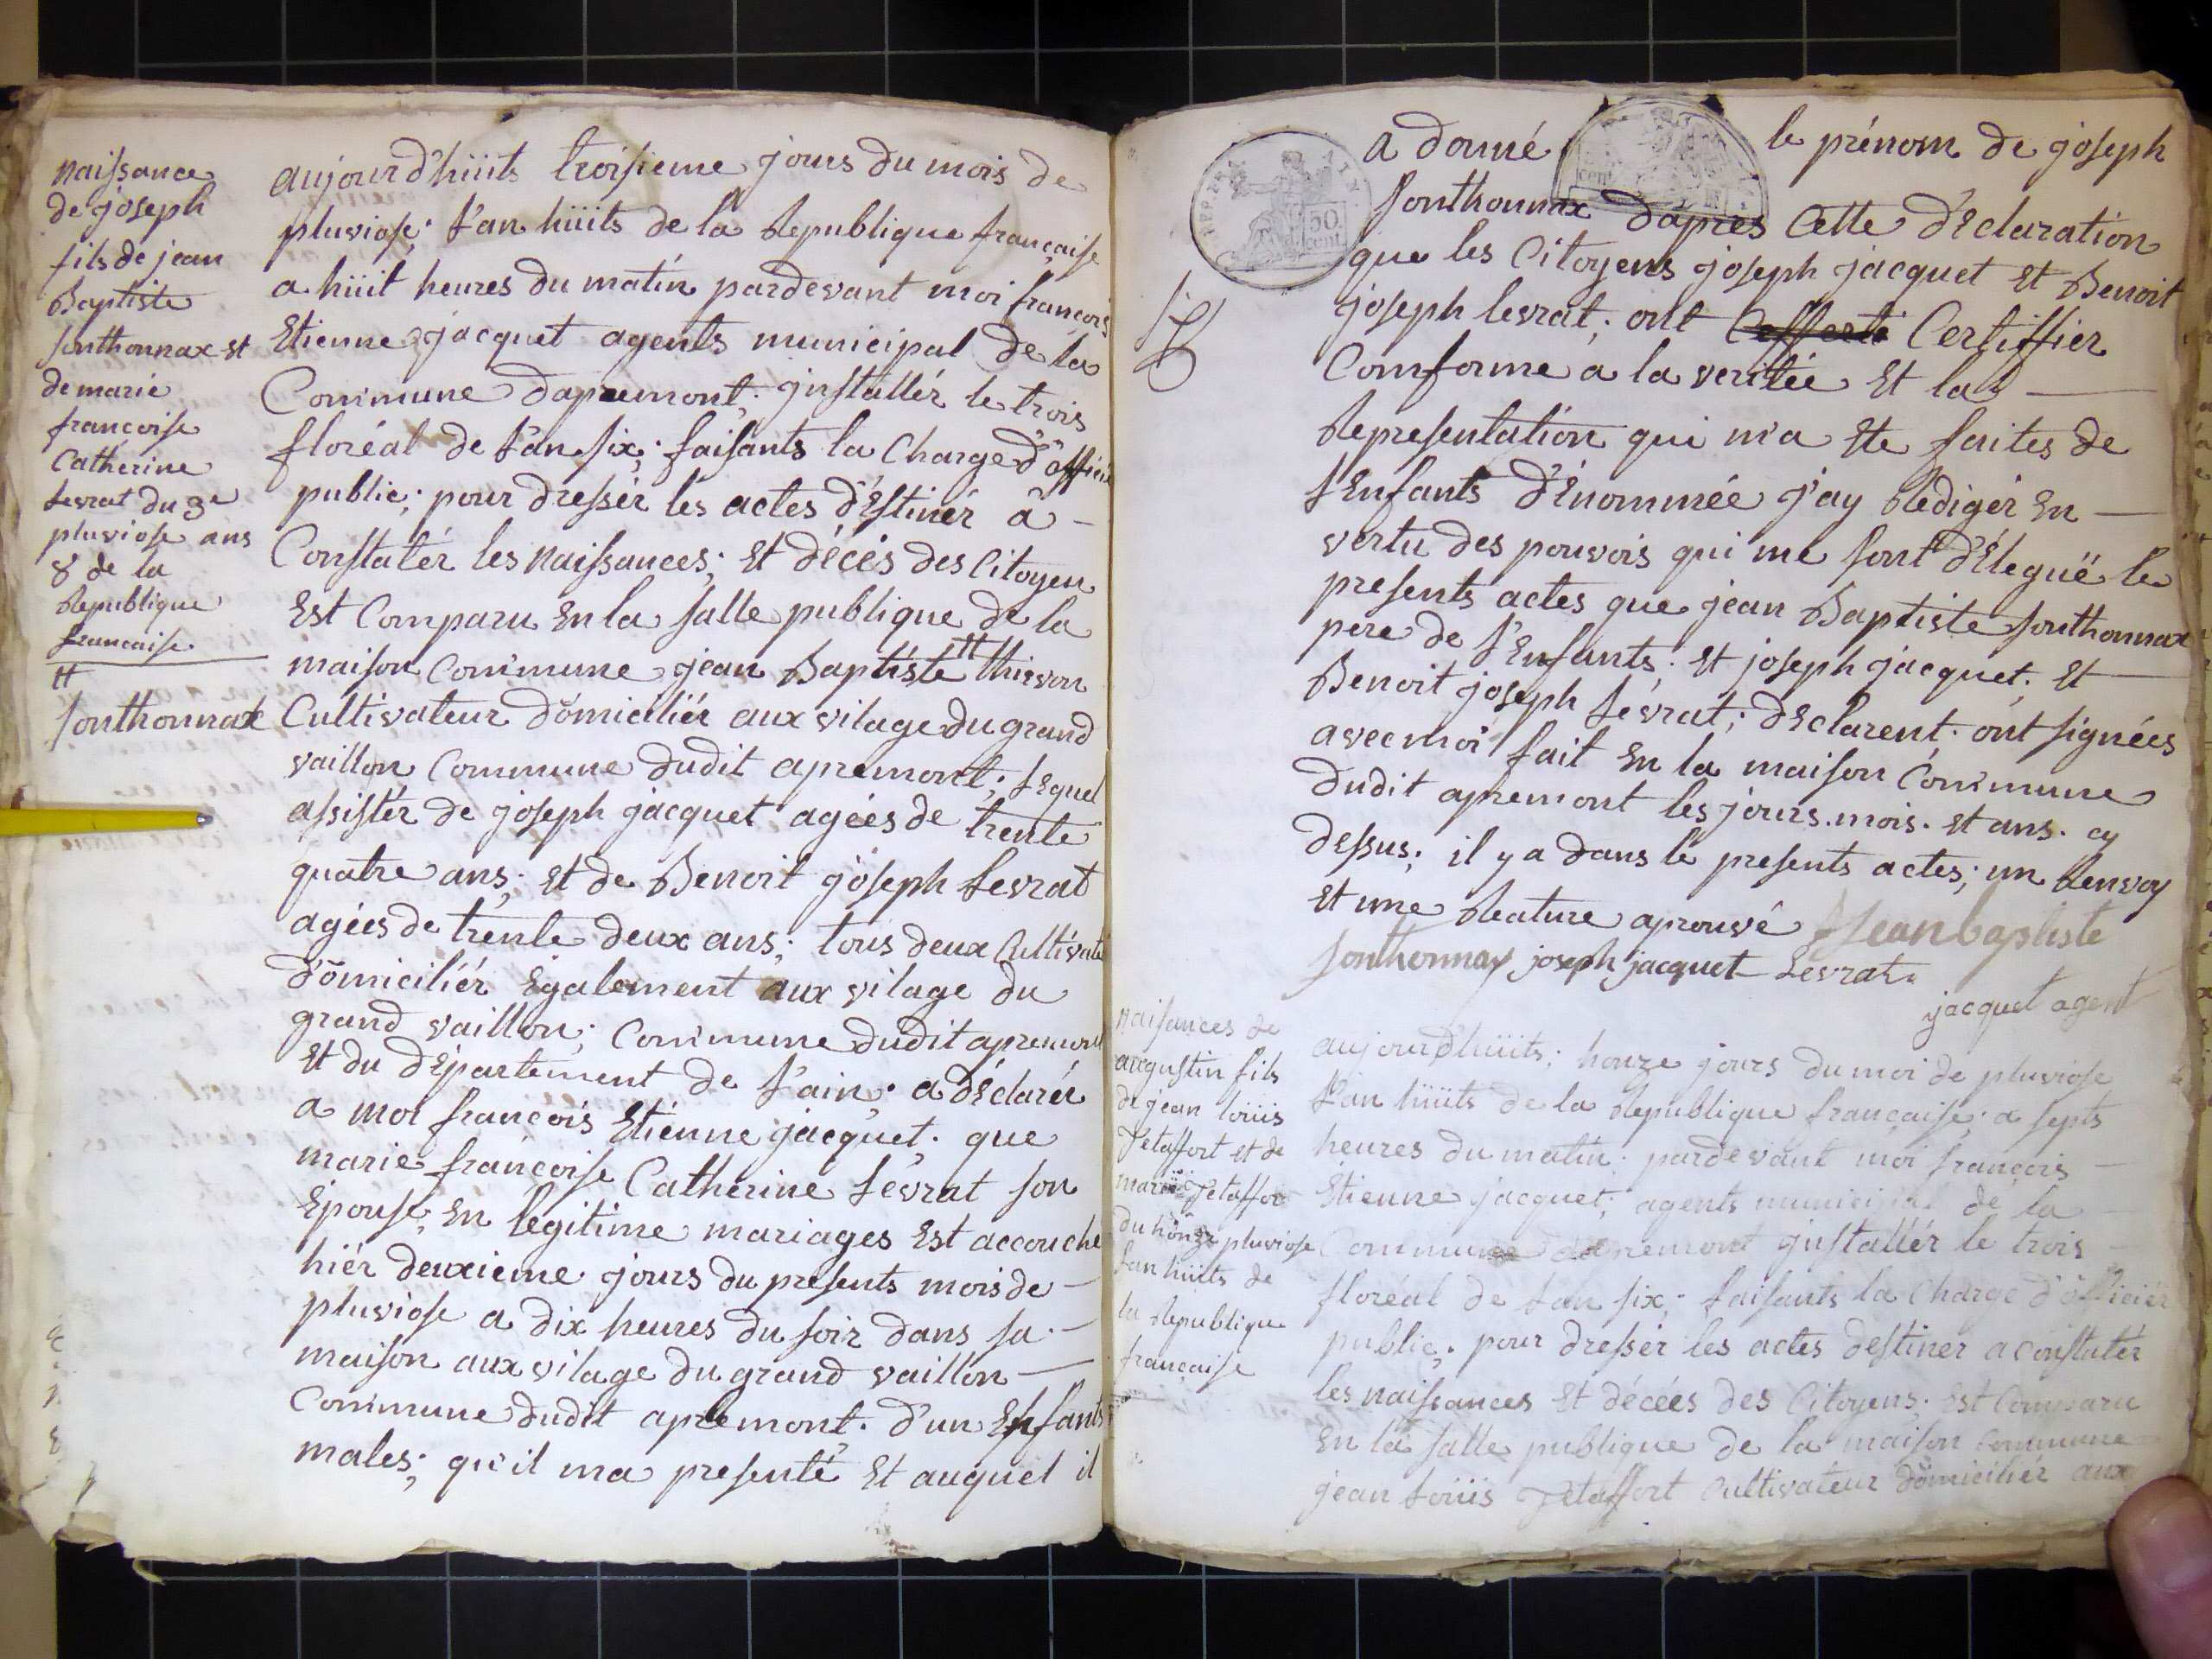 naissance
de joseph
fils de jean
Baptiste
sonthonnax et
de marie
francoise
Catherine
Levrat du 3e
pluviose ans
8 de la
Republique
francaise.
tt
sonthonnax
aujourd'hüits troisieme jours du mois de
pluviose; L'an hüits de la Republique française
a hüit heures du matin pardevant moi françois
Etienne jacquet agents municipal de la
Commune dapremont; jnstallér le trois
floréal de L'an six; faisants la Charge d'officié
public; pour dressér les actes d'Estinér a -
Constatér les naissances; et décés des Citoyen
Est Comparu En la salle publique de la
maison Commune jean Baptiste tt thievon
Cultivateur domiciliér aux vilage du grand
vaillon Commune dudit apremont; Lequel
assistér de joseph jacquet agées de trente
quatre ans; et de Benoit joseph Levrat
agées de trente deux ans; tous deux Cultivate
domiciliér Egalement aux vilage du
grand vaillon; Commune dudit apremont
et du département de L'ain; a déclarér
a moi françois Etienne jacquet; que
marie françoise Catherine Levrat son
Epouse; En legitime mariages Est accouche
hiér deuxieme jours du presents mois de -
pluviose a dix heures du soir dans sa -
maison aux vilage du grand vaillon -
Commune dudit apremont. d'un Enfants
males; qu'il ma presenté Et auquel il
a donné le prénom de joseph
sonthonnax dapres Cette déclaration
que les Citoyens joseph jacquet et Benoit
joseph levrat; ont Certiffier
Comforme a la veritée et la -
Representation qui m'a Ete faites de
L'Enfants d'énommée j'ay Redigér En -
vertu des pouvois qui me sont délegué le
presents actes que jean Baptiste sonthonnax
pere de L'Enfants; et joseph jacquet; et -
Benoit joseph Levrat; déclarent; ont signées
avec moi fait En la maison Commune
dudit apremont les jours. mois. et ans. cy
dessus; il y a dans le presents actes; un Renvoy
et une Rature aprouvé Jean baptiste
sonthonnax joseph jacquet Levrat
jacquet agent
naisances de
augustin fils
de jean loüis
Tetaffort et de
marie Tetaffor
du honze pluviose
L'an hüits de
la Republique
francaise
aujourd'hüits; honze jours du moi de pluviose
L'an hüits de la Republique française; a septs
heures du matin; pardevant moi françois -
Etienne jacquet; agents municipal de la -
Commune dapremont jnstallér le trois -
floréal de L'an six; faisants la Charge d'officiér
public; pour dressér les actes destiner a Constatér
les naissances et décées des Citoyens; Est Comparu
En la salle publique de la maison Commune
jean Loüis Tetaffort Cultivateur domiciliér aux